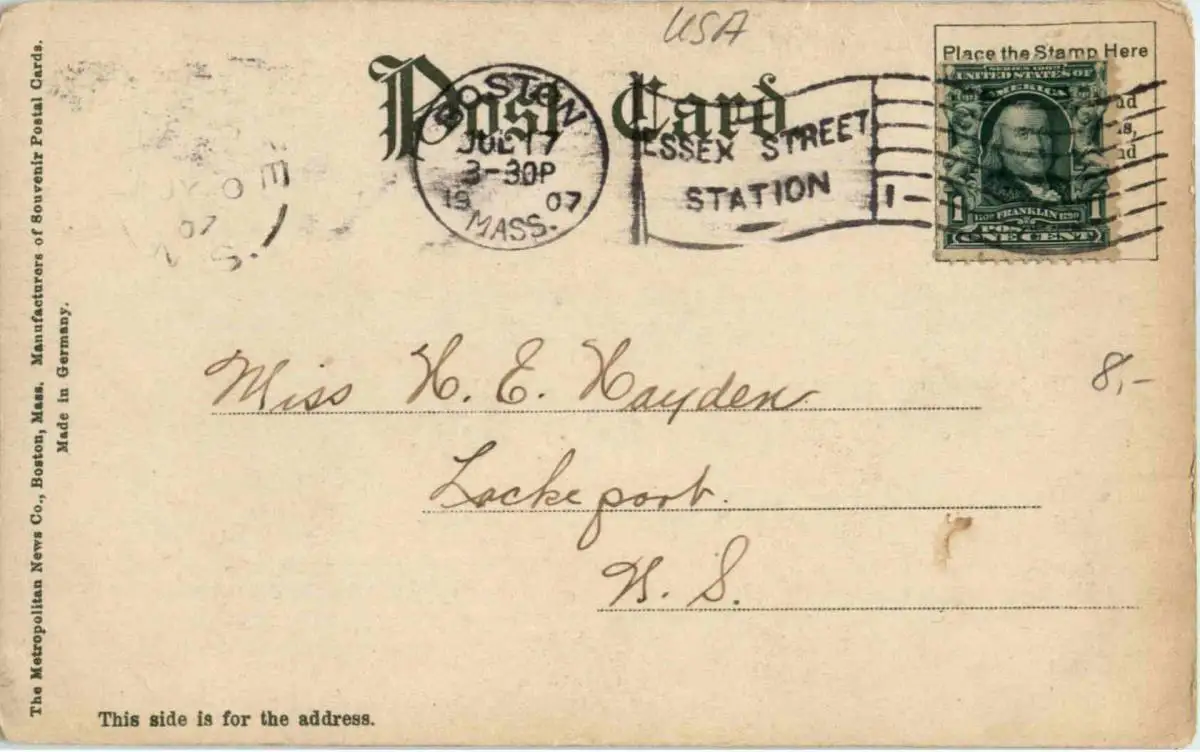 USA
Post Card
Place the Stamp Here
BOSTON
JUL 17
3-30P
1907
MASS.
ESSEX STREET
STATION
1
SERIES 1902
UNITED STATES OF
AMERICA
1706 FRANKLIN 1790
POSTAGE
1 ONE CENT 1
E
07
S.
Miss H. E. Hayden
Lockeport.
N. S.
8,-
This side is for the address.
The Metropolitan News Co., Boston, Mass. Manufacturers of Souvenir Postal Cards.
Made in Germany.